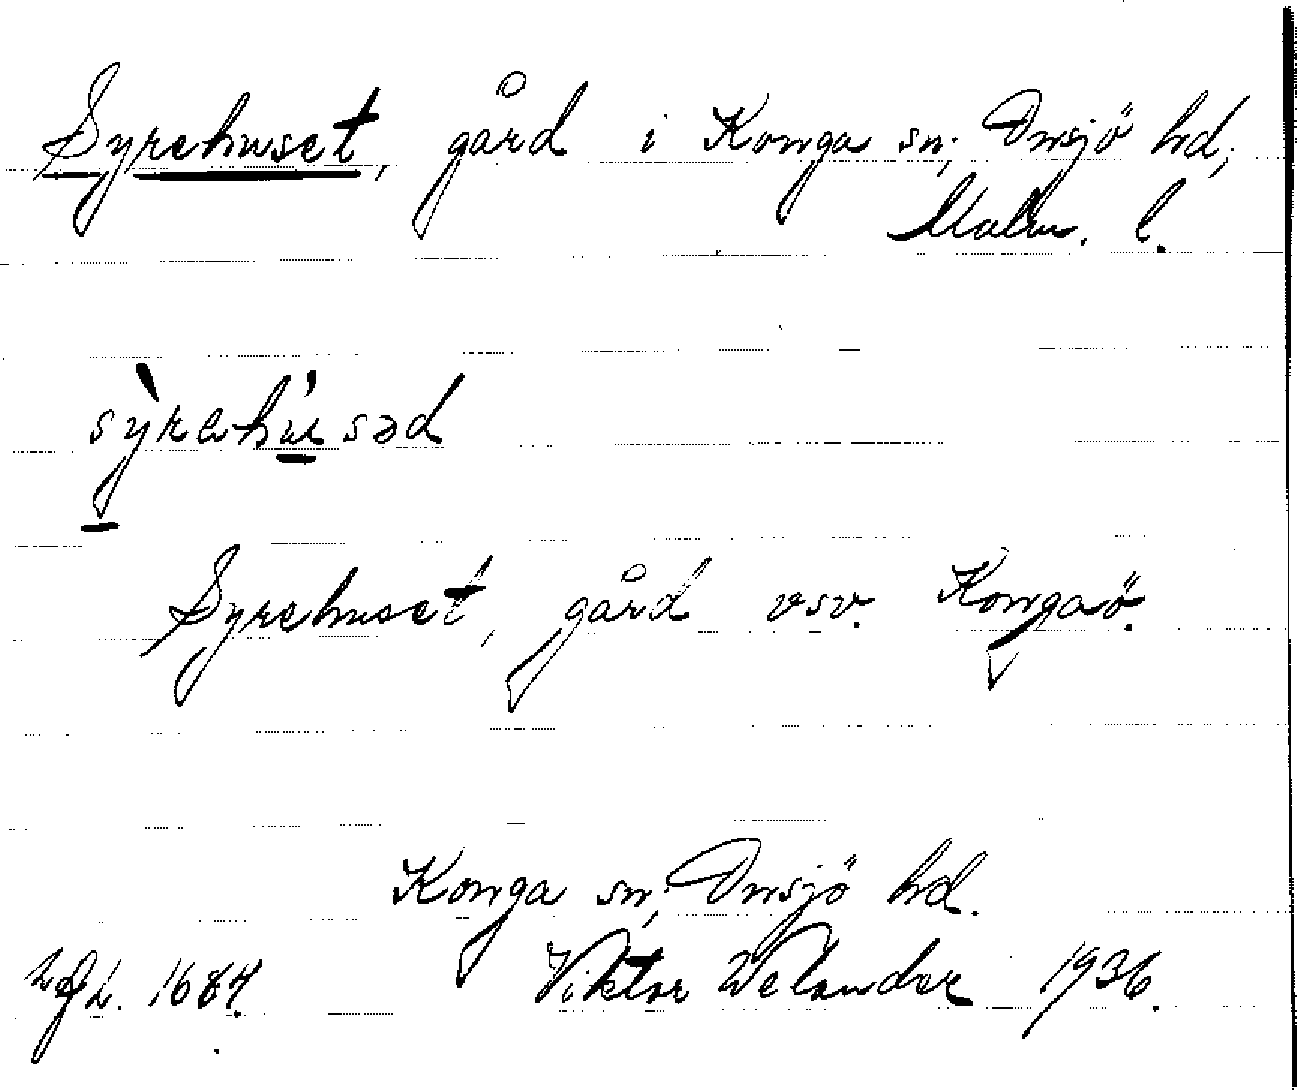 Syrehuset, gård i Konga sn; Onsjö hd;
Malm. l.
sỳrəhúsəd
Syrehuset, gård vsv. Kongaö.
Konga sn; Onsjö hd.
1684. Viktor Welander 1936.